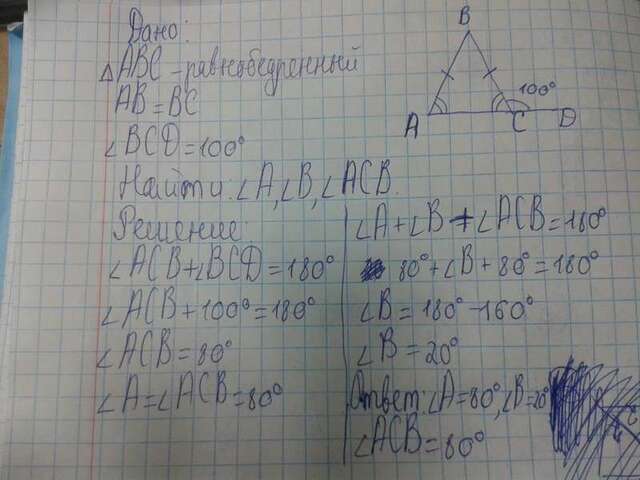 Дано:
△ABC – равнобедренный
AB = BC
∠BCD = 100°
Найти: ∠A, ∠B, ∠ACB.
Решение
∠ACB + ∠BCD = 180°
∠ACB + 100° = 180°
∠ACB = 80°
∠A = ∠ACB = 80°
∠A + ∠B + ∠ACB = 180°
80° + ∠B + 80° = 180°
∠B = 180° – 160°
∠B = 20°
Ответ: ∠A = 80°, ∠B = 20°
∠ACB = 80°
B
100°
A
C
D